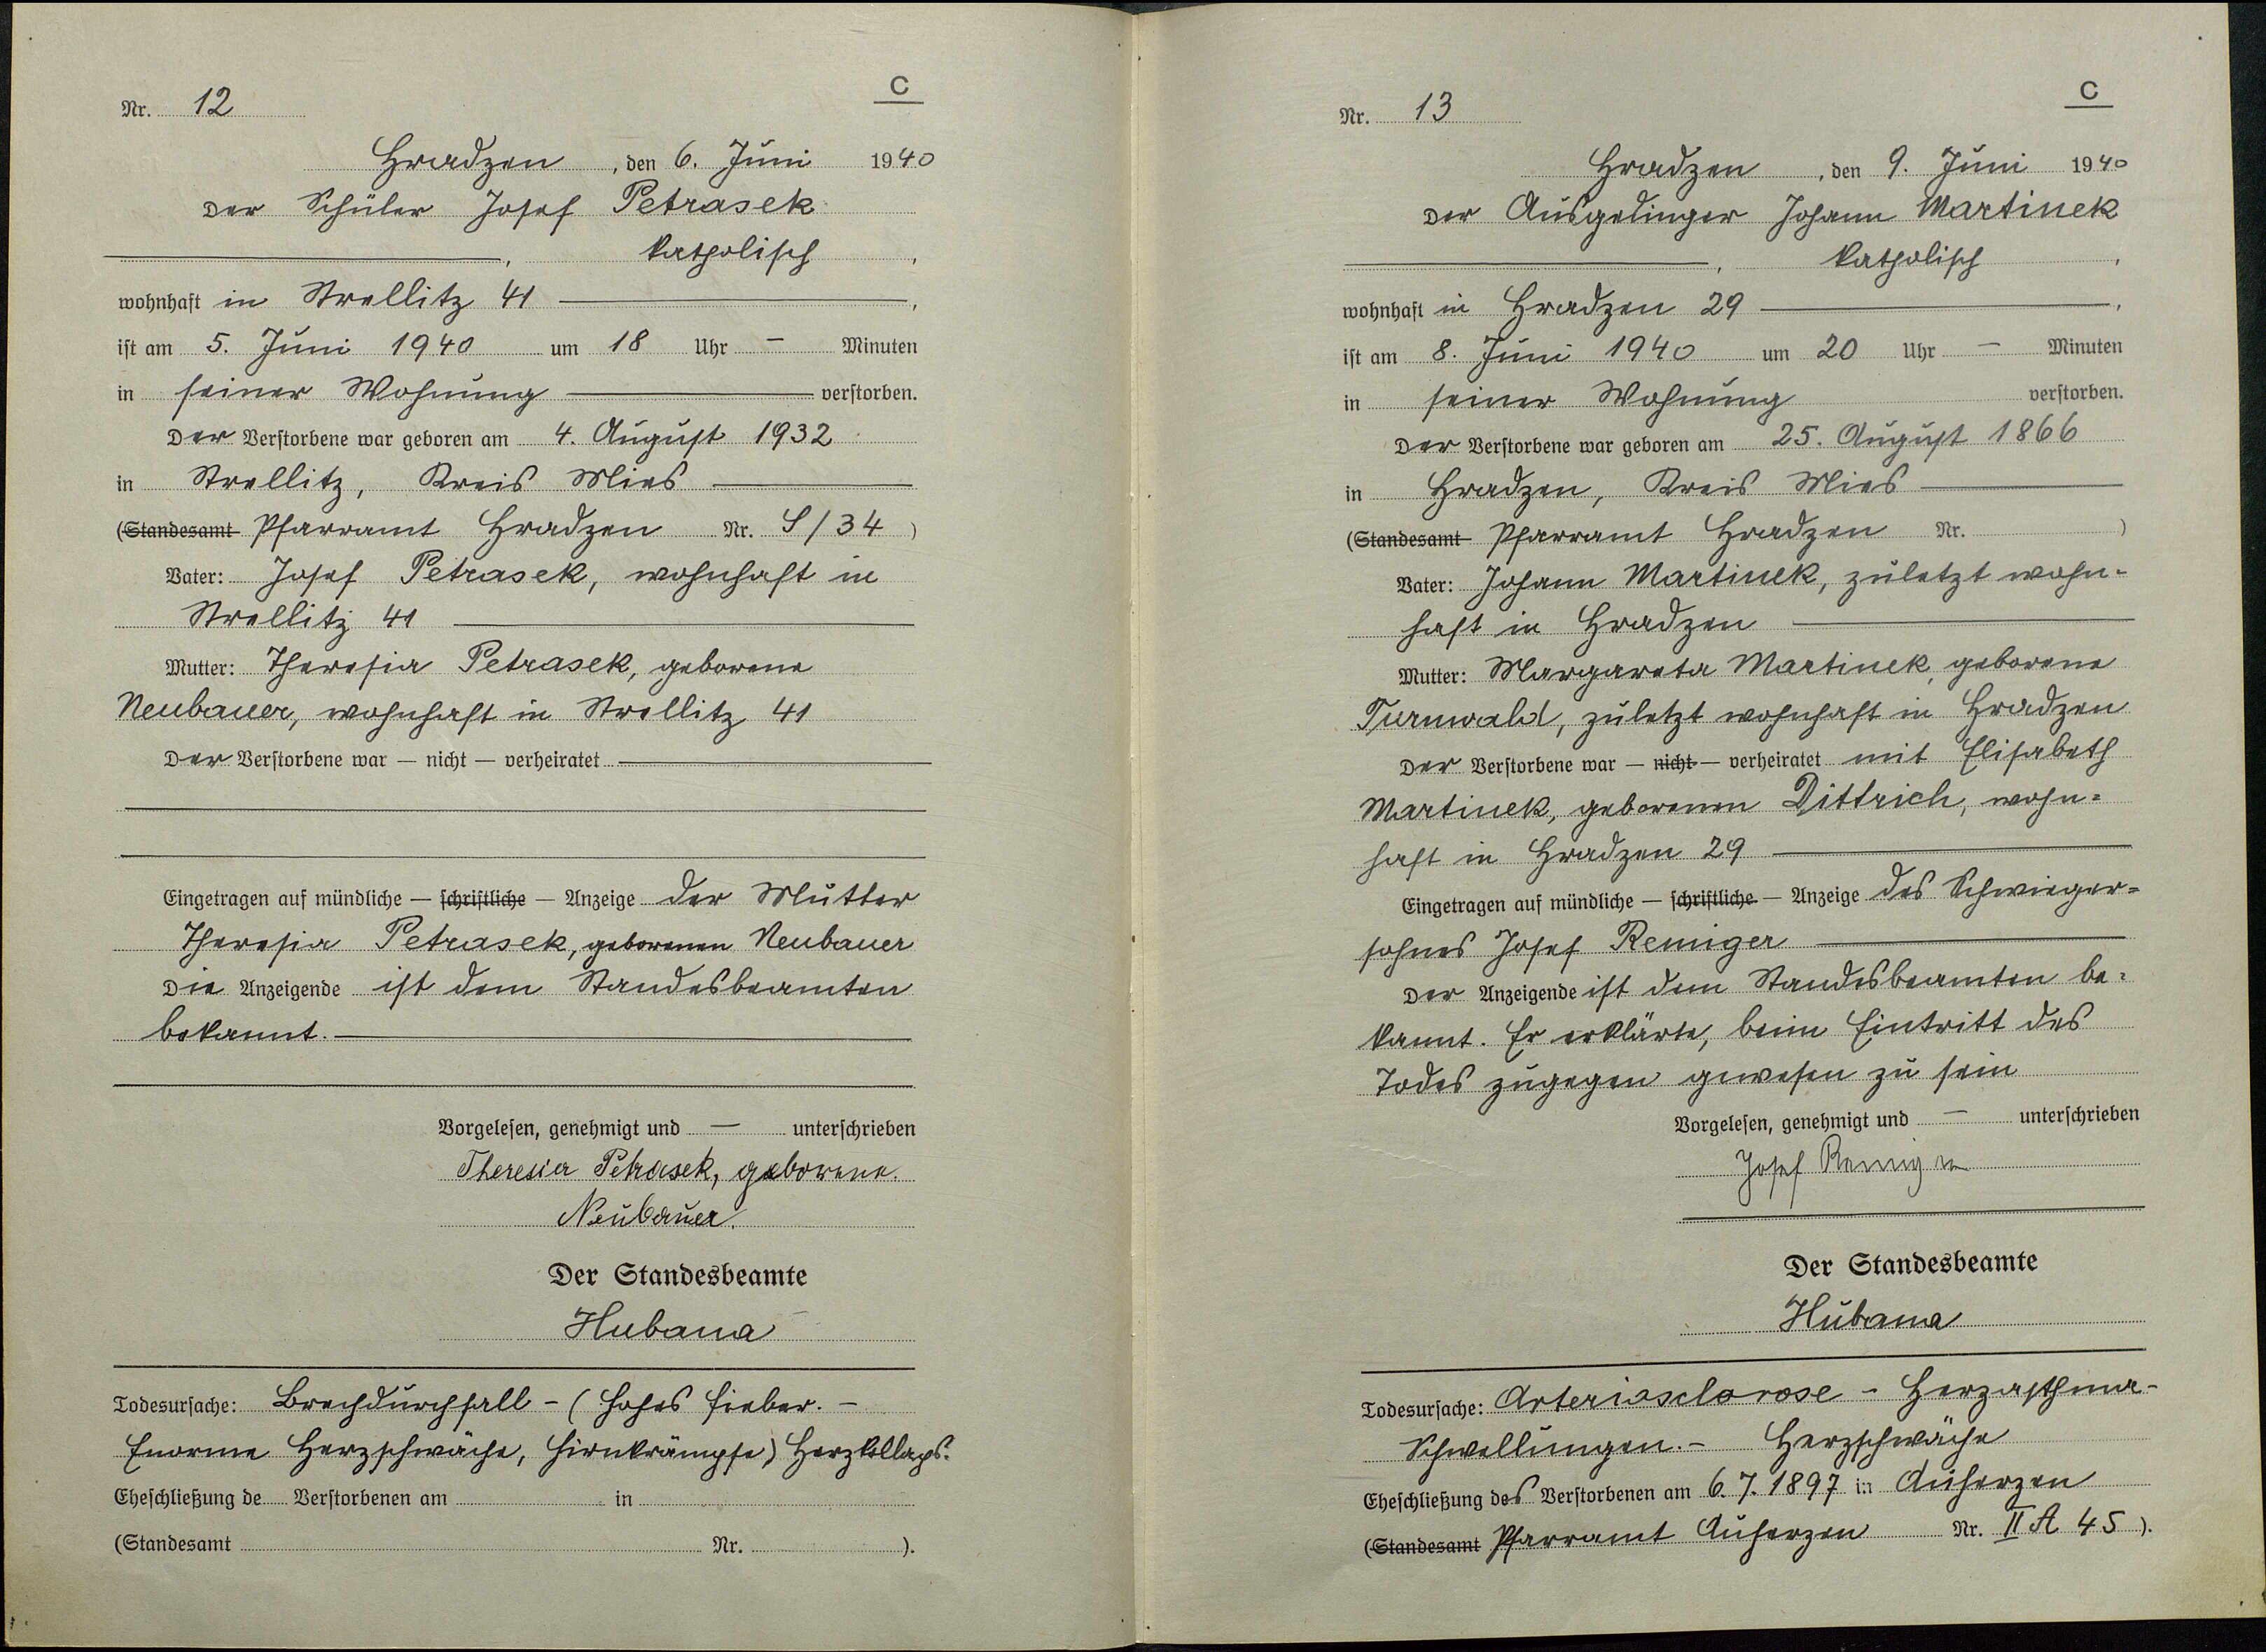 C
Nr. 12
Hradzen, den 6. Juni 1940
Der Schüler Josef Petrasek
, katholisch,
wohnhaft in Strellitz 41,
ist am 5. Juni 1940 um 18 Uhr – Minuten
in seiner Wohnung verstorben.
Der Verstorbene war geboren am 4. August 1932
in Strellitz, Kreis Mies
(Standesamt Pfarramt Hradzen Nr. S/34)
Vater: Josef Petrasek, wohnhaft in
Strellitz 41
Mutter: Theresia Petrasek, geborene
Neubauer, wohnhaft in Strellitz 41
Der Verstorbene war — nicht — verheiratet
Eingetragen auf mündliche — schriftliche — Anzeige der Mutter
Theresia Petrasek, geborenen Neubauer
Die Anzeigende ist dem Standesbeamten
bekannt.
Vorgelesen, genehmigt und — unterschrieben
Theresia Petrasek, geborene.
Neubauer.
Der Standesbeamte
Hubana
Todesursache: Brechdurchfall - (hohes Fieber. -
Enorme Herzschwäche, Hirnkrämpfe) Herzkollaps.
Eheschließung de Verstorbenen am in
(Standesamt Nr. ).
C
Nr. 13
Hradzen, den 9. Juni 1940
Der Ausgedinger Johann Martinek
, katholisch,
wohnhaft in Hradzen 29,
ist am 8. Juni 1940 um 20 Uhr — Minuten
in seiner Wohnung verstorben.
Der Verstorbene war geboren am 25. August 1866
in Hradzen, Kreis Mies
(Standesamt Pfarramt Hradzen Nr. )
Vater: Johann Martinek, zuletzt wohn-
haft in Hradzen
Mutter: Margareta Martinek, geborene
Turnwald, zuletzt wohnhaft in Hradzen
Der Verstorbene war — nicht — verheiratet mit Elisabeth
Martinek, geborenen Dittrich, wohn-
haft in Hradzen 29
Eingetragen auf mündliche — schriftliche — Anzeige des Schwieger-
sohnes Josef Remiger
Der Anzeigende ist dem Standesbeamten be-
kannt. Er erklärte, beim Eintritt des
Todes zugegen gewesen zu sein
Vorgelesen, genehmigt und — unterschrieben
Josef Remiger
Der Standesbeamte
Hubana
Todesursache: Arteriosclerose - Herzasthma-
Schwellungen. - Herzschwäche
Eheschließung des Verstorbenen am 6. 7. 1897 in Auherzen
(Standesamt Pfarramt Auherzen Nr. II A 45).